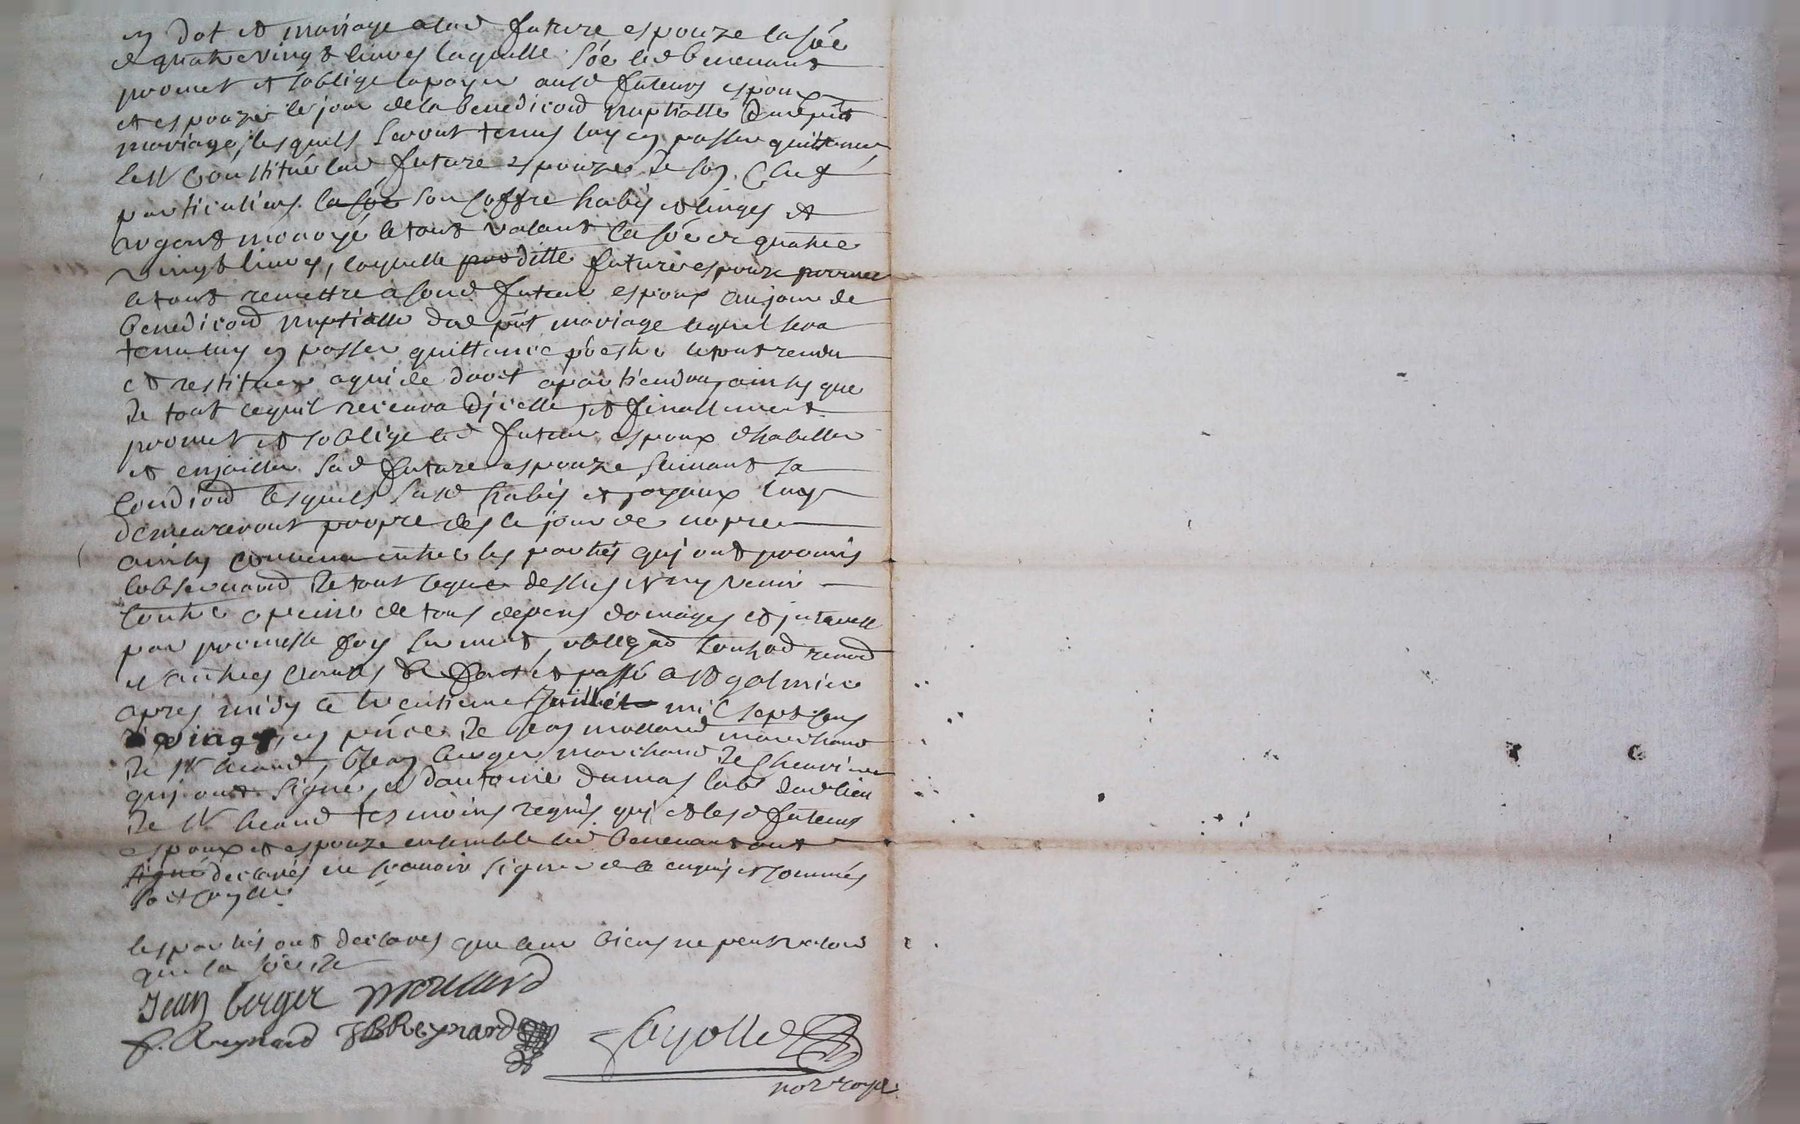 en dot et mariage a lad future espouze la sõe
de quatre vingt livres laquelle sõe led benevant
promet et soblige la payer ausd futeurs espoux
et espouze le jour de la benediction nuptialle du put
mariage, lesquels seront tenus luy en passer quittance
se constitue lad future espouze de son chef
particuliers la sõe son coffre habis et linges et
argent monoyé le tout valant la sõe de quatre
vingt livres, laquelle ditte future espouze promet
le tout remettre a sond futeur espoux au jour de
benediction nuptialle dud put mariage lequel sera
tenu luy en passer quittance p estre le tout rendu
et restituer a qui de droit apartiendra, ainsy que
de tout ce quil recevra dicelle, et finallement
promet et soblige led futeur espoux dhabiller
et enjoailler sad future espouze suivant sa
condiond lesquels susd habis et joyaux luy
demeureront propre des le jour de nopce
ainsy convenu entre les parties qui ont promis
lobservaond de tout ce que dessus et ny venir
contre a peine de tous depens domages et interest
par promesse foy serment, obligaod souhod renod
et autres clauses &c fait et passé a St galmier
apres midy ce trentieme Juillet mil sept cens
vingt, en pñce de Jean mollard marchand
de St heand, Jean berger marchand de
qui ont signé, et dantoine dumas lab dud lieu
de St heand tesmoins requis, qui et lesd futeurs
espoux et espouze ensemble led benevant ont
signé declarés ne scavoir signer de ce enquis et sommés
les parties ont declarés que leur biens ne peut valoir
que la sõe de
Jean berger mollard
f. Reynard JB Reynard
fayolle
not royal